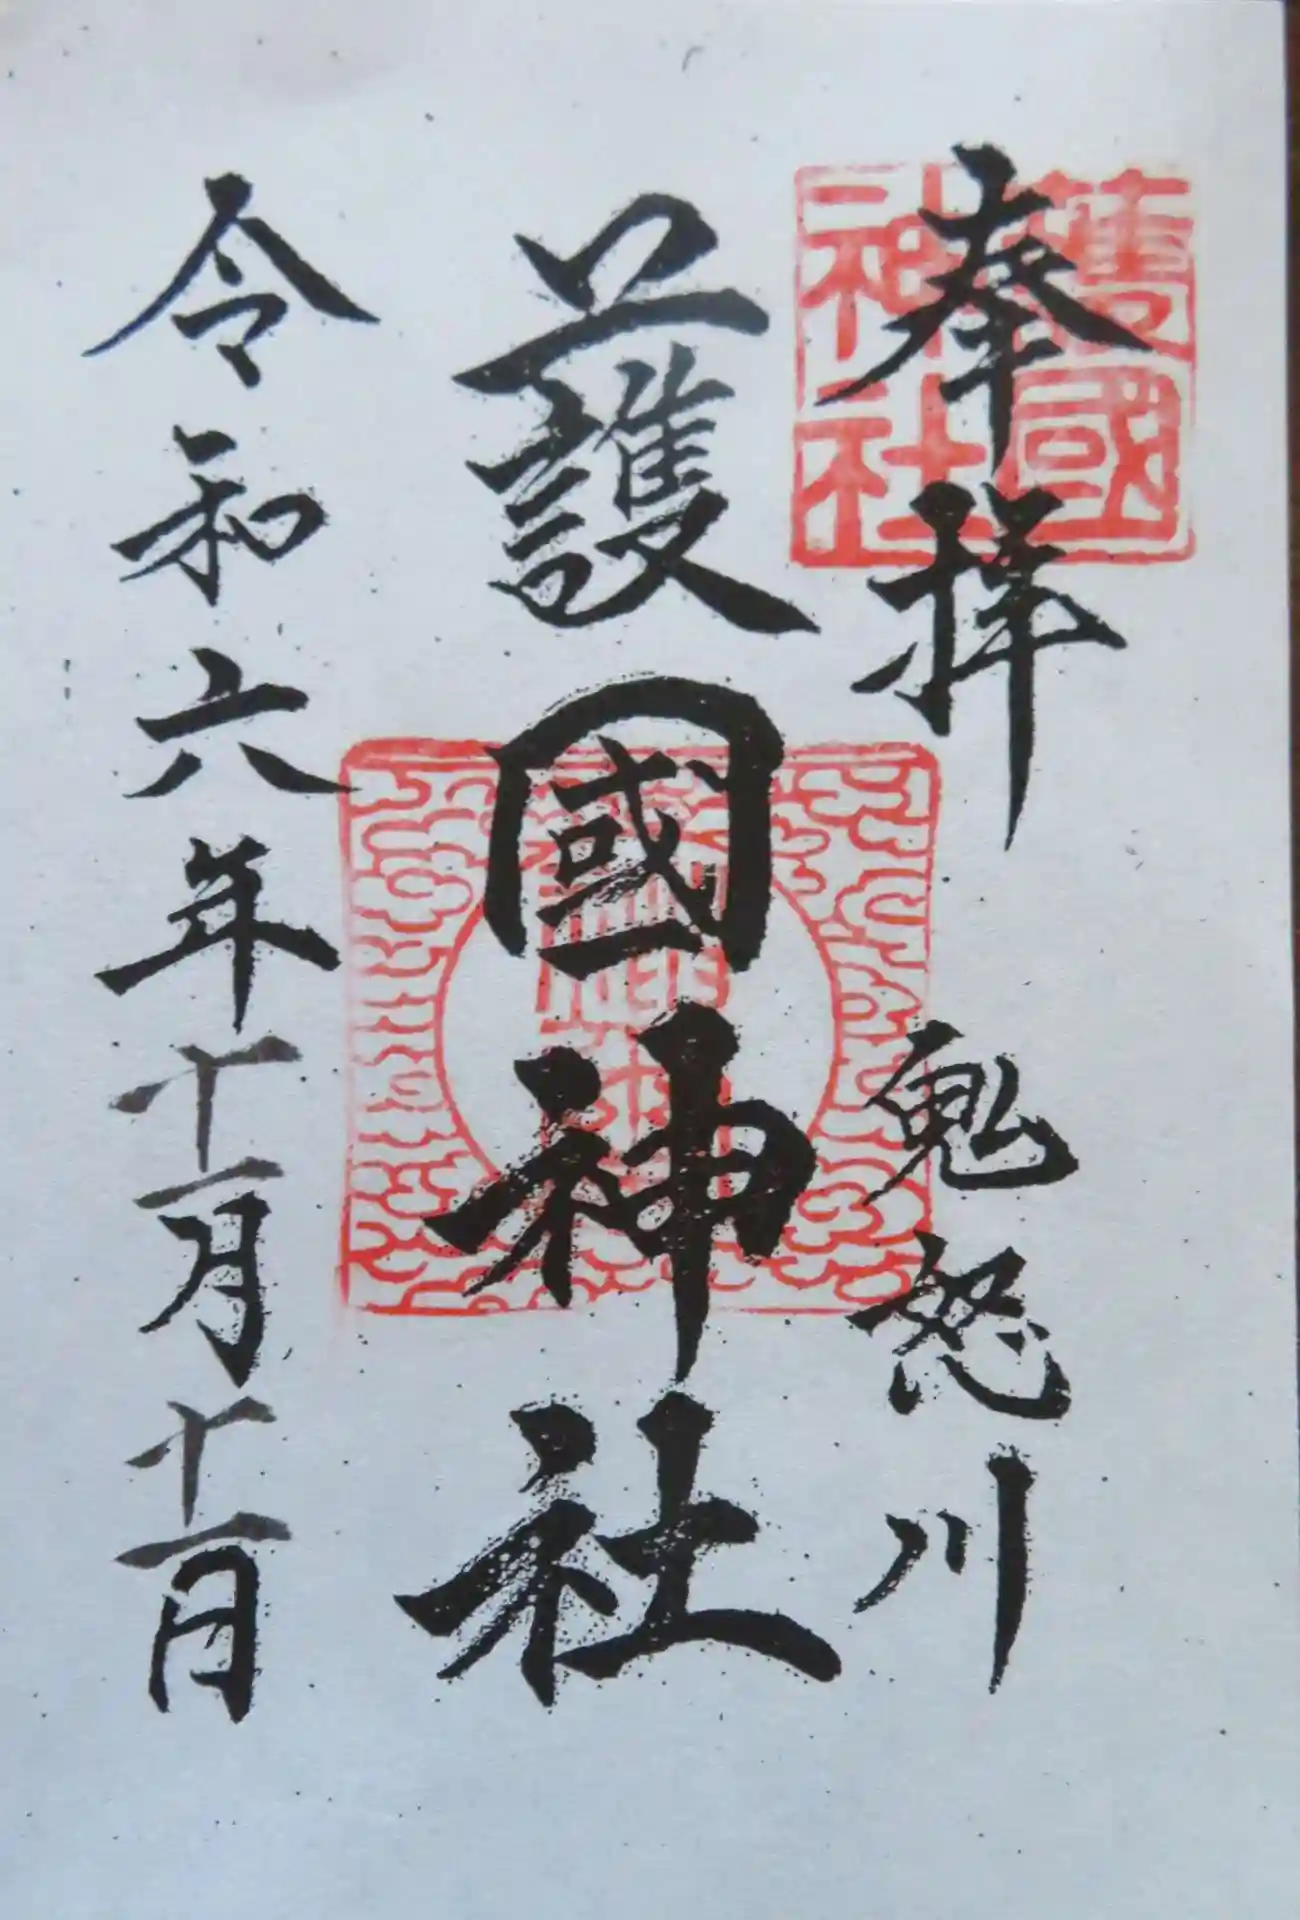 奉拝　鬼怒川
護國神社
令和六年十一月十一日
護國
神社